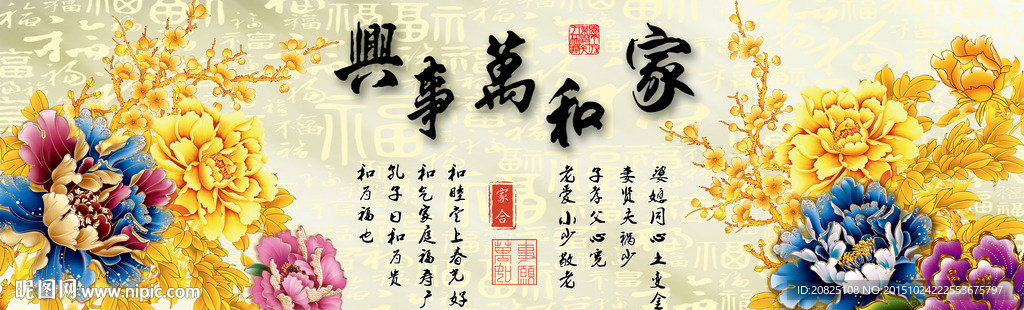 家和萬事興
婆媳同心土变金
妻贤夫祸少
子孝父心宽
老爱小少敬老
家合
事願
和睦堂上春光好
和气家庭福寿广
孔子曰和为贵
和为福也
昵图网 www.nipic.com
ID:20825108 NO:20151024222553675797